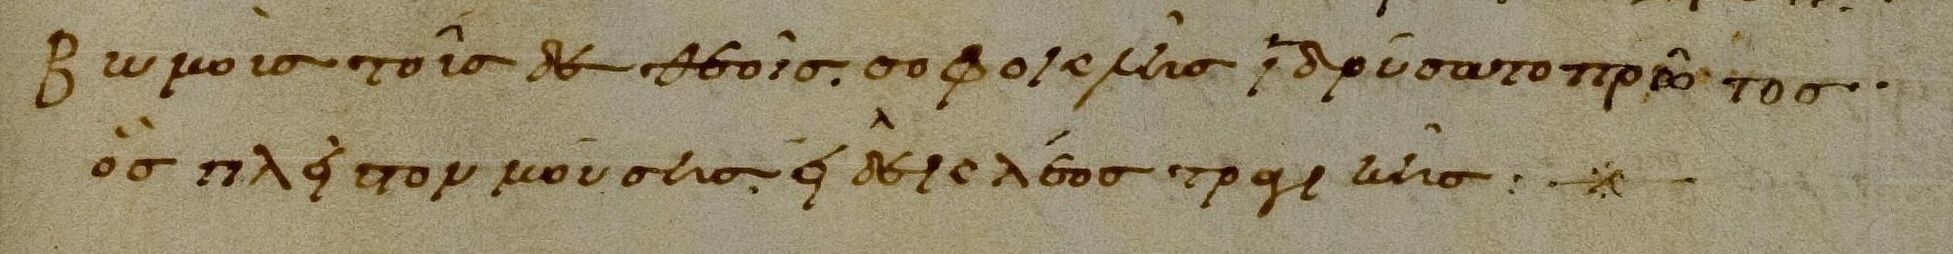 Βωμοὶς τοῖς δε θεοῖς. σοφοκλῆς ἱδρύσατο πρῶτος·
ὃς πλεῖστον μούσης. εἷλε κλέος τραγικῆς: